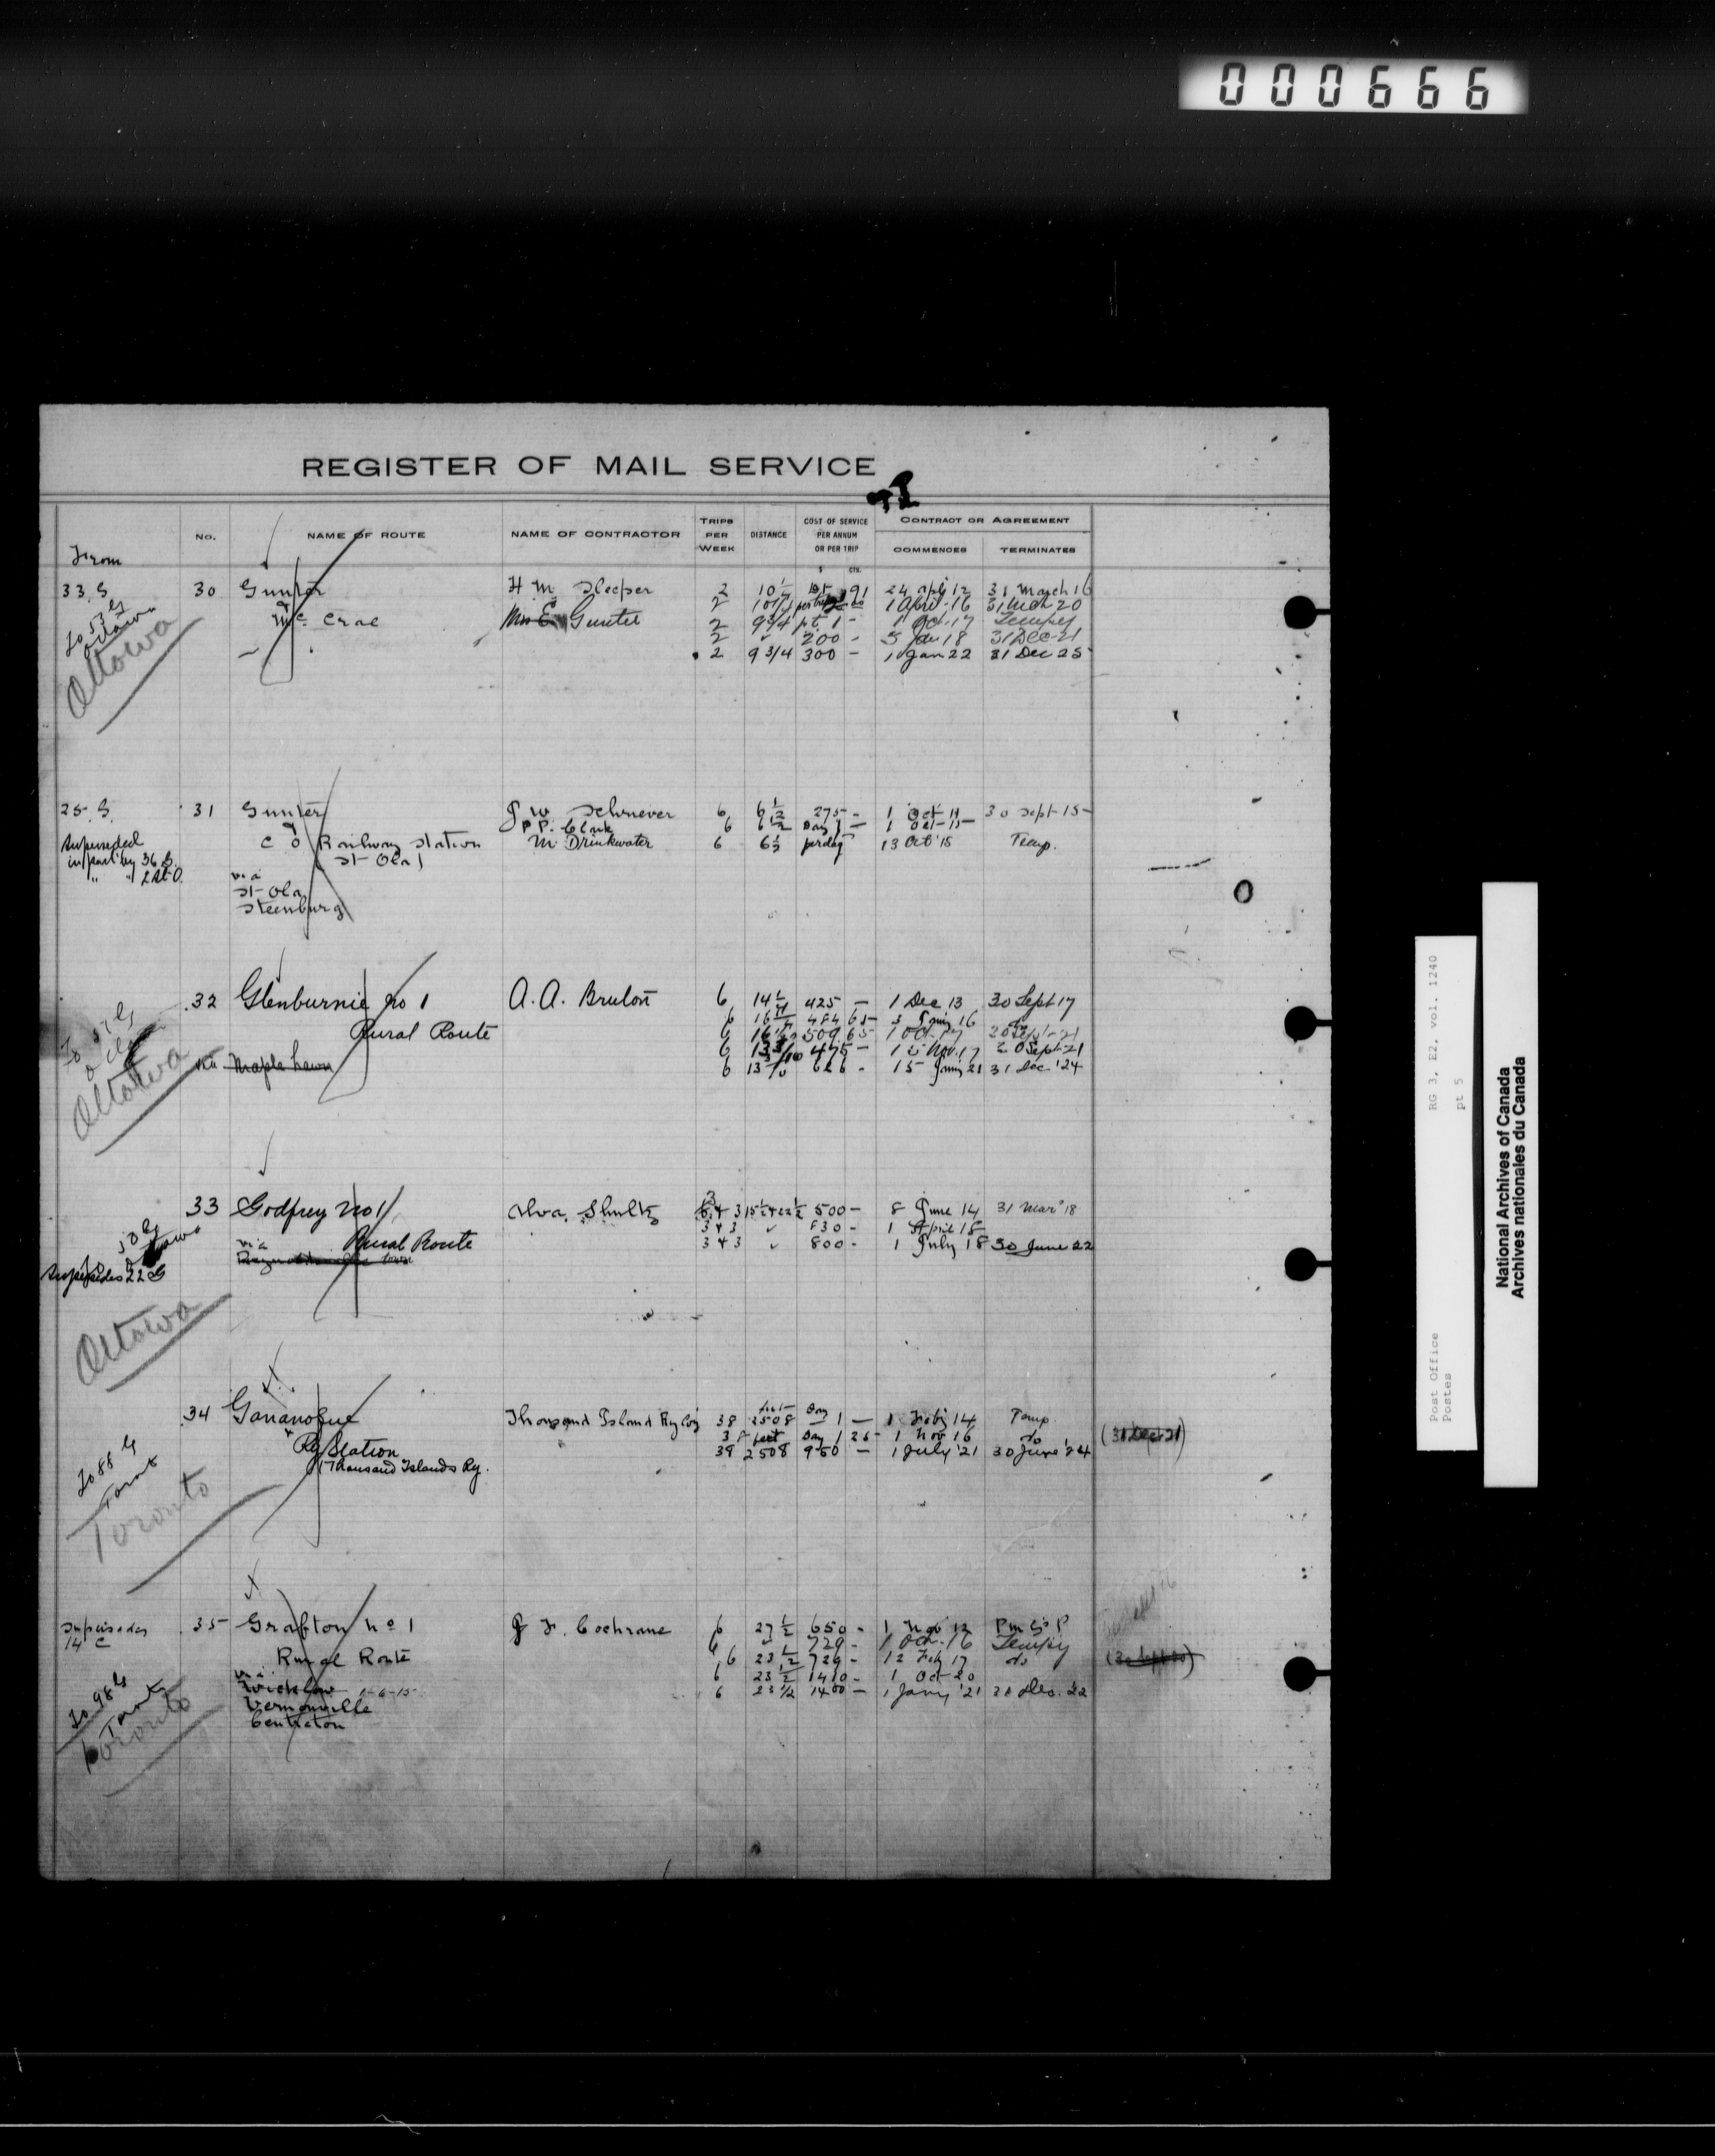 000666
REGISTER OF MAIL SERVICE
From
No.
NAME OF ROUTE
NAME OF CONTRACTOR
TRIPS PER WEEK
DISTANCE
COST OF SERVICE PER ANNUM OR PER TRIP
$ CTS.
CONTRACT OR AGREEMENT
COMMENCES
TERMINATES
33 G 30 Gunter H M Sleeper 2 10 91 24 Apl 12 31 March 16
& 2 1 April 16 31 Mch 20
Mc Crae Mrs E Gunter 2 9 3/4 pt. 1 - 1 Oct. 17 Tempy
2 " 200 - 5 Jan 18 31 Dec 21
2 9 3/4 300 - 1 Jan 22 31 Dec 25
To 53 G
Ottawa
Ottawa
25 G 31 Gunter J W 6 6 1/2 275 - 1 Oct 11 30 Sept 15
& P. P. Clark 6 6 1/2 Day 1 - 1 Oct 15
Superseded C O Railway Station M. Drinkwater 6 6 1/2 per day 13 Oct '15 Temp.
in part by 36 G. St Ola
" " 2 St O.
via
St Ola
Steenburg
32 Glenburnie No 1 A. A. Bruton 6 14 1/2 425 - 1 Dec 13 30 Sept 17
6 484 65 16
Rural Route 6 509 65 1 Oct 17 30 Sept 21
6 475 - 15 Nov. 17 Sept 21
via Maple Lawn 6 626 - 15 21 31 Dec '24
Ottawa
33 Godfrey No 1 Alva Shultz 500 - 8 June 14 31 Mar '18
3 4 3 " 830 - 1 April 18
via Rural Route 3 4 3 " 800 - 1 July 18 30 June 22
Supersedes 22 G
Ottawa
34 Gananoque Thousand Island Ry Coy 38 2508 feet Day 1 - 1 14 Temp.
& 38 feet Day 1 25 1 Nov 16 do (31 Dec 21)
Ry Station 38 2508 950 - 1 July '21 30 June '24
(Thousand Islands Ry.
To 88 G
Toront
Toronto
Supersedes 35 Grafton No 1 J. F. Cochrane 6 27 1/2 650 - 1 Nov 12
14 C 6 " 729 - 1 Oct. 16 Tempy
Rural Route 6 23 1/2 729 - 12 Feby 17 do (30 Sept 20)
via 6 23 1/2 1400 - 1 Oct 20
Wicklow 1-6-15 6 23 1/2 1400 - 1 Jany '21 31 Dec. '22
Vernonville
Centreton
To 98 G
Toronto
Toronto
Post Office RG 3, E2, vol. 1240
Postes pt 5
National Archives of Canada
Archives nationales du Canada